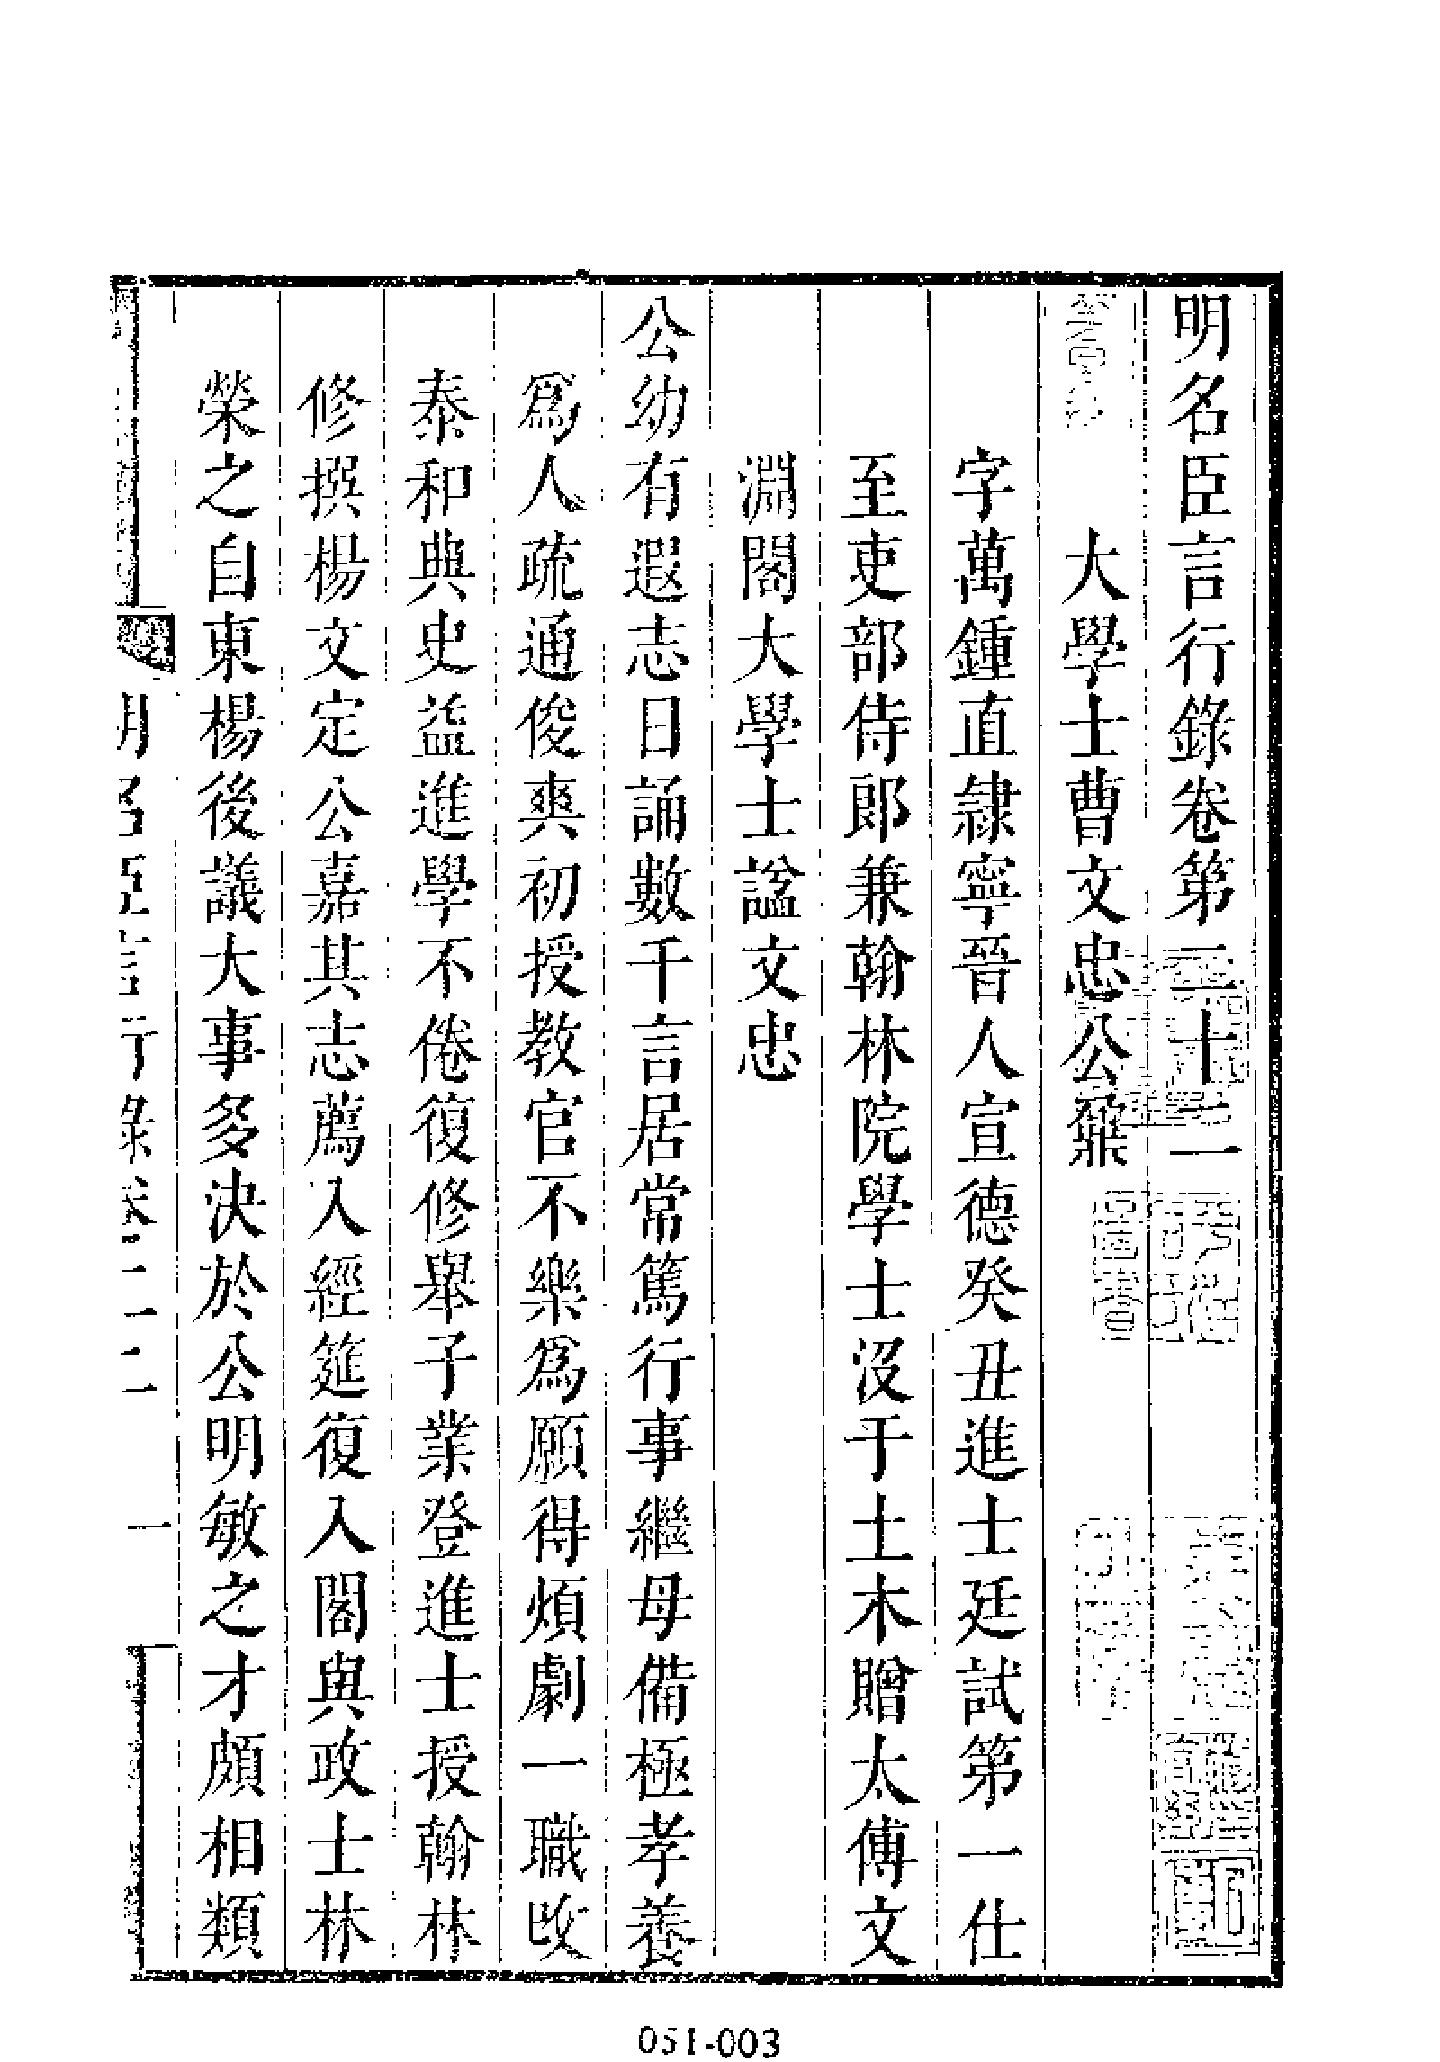 明名臣言行錄卷第二十二
大學士曹文忠公鼐
字萬鍾直隸寧晉人宣德癸丑進士廷試第一仕
至吏部侍郎兼翰林院學士沒于土木贈太傅文
淵閣大學士諡文忠
公幼有遐志日誦數千言居常篤行事繼母備極孝養
爲人疏通俊爽初授教官不樂爲願得煩劇一職改
泰和典史益進學不倦復修舉子業登進士授翰林
修撰楊文定公嘉其志薦入經筵復入閣與政士林
榮之自東楊後議大事多決於公明敏之才頗相類
明名臣言行錄卷二十二
一
051-003